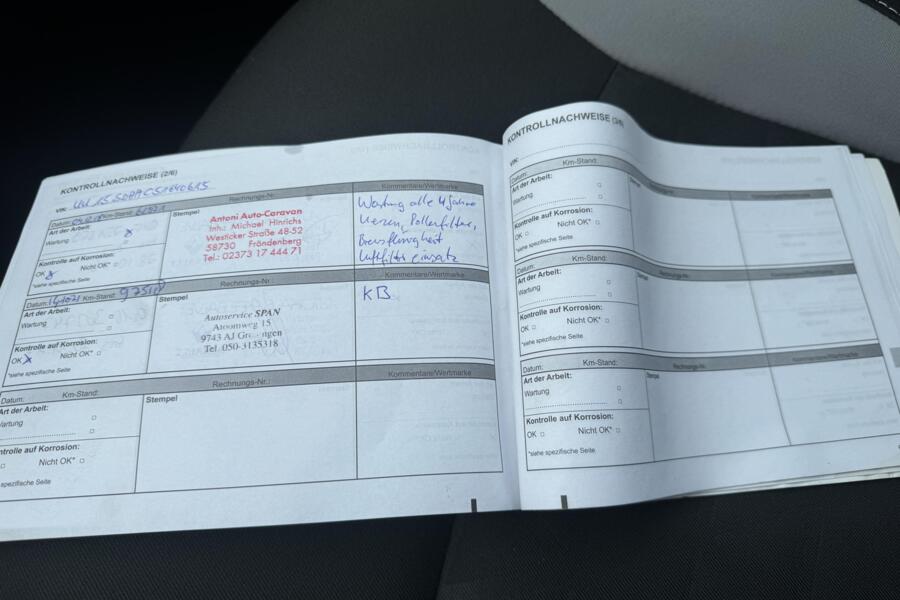 KONTROLLNACHWEISE (2/6)
VIN:
Rechnungs-Nr.:
Kommentare/Wertmarke
Datum: Km-Stand:
Stempel
Art der Arbeit:
Wartung
Kontrolle auf Korrosion:
OK Nicht OK*
*siehe spezifische Seite
Antoni Auto-Caravan
Inh.: Michael Hinrichs
Westicker Straße 48-52
58730 Fröndenberg
Tel.: 02373 17 444 71
Wartung alle 4 Jahre
Kerzen, Pollenfilter,
Bremsflüssigkeit
Luftfilter einsatz
Datum: Km-Stand: 97518
Rechnungs-Nr.:
Kommentare/Wertmarke
Stempel
Art der Arbeit:
Wartung
Kontrolle auf Korrosion:
OK Nicht OK*
*siehe spezifische Seite
Autoservice SPAN
Atoomweg 15
9743 AJ
Tel. 050-3135318
KB
Datum: Km-Stand:
Rechnungs-Nr.:
Kommentare/Wertmarke
Art der Arbeit:
Wartung
Kontrolle auf Korrosion:
Nicht OK*
spezifische Seite
Stempel
KONTROLLNACHWEISE (3/6)
VIN:
Datum: Km-Stand:
Art der Arbeit:
Wartung
Kontrolle auf Korrosion:
OK Nicht OK*
*siehe spezifische Seite
Datum: Km-Stand:
Art der Arbeit:
Wartung
Kontrolle auf Korrosion:
OK Nicht OK*
*siehe spezifische Seite
Datum: Km-Stand:
Rechnungs-Nr.:
Kommentare/Wertmarke
Art der Arbeit:
Stempel
Wartung
Kontrolle auf Korrosion:
OK Nicht OK*
*siehe spezifische Seite